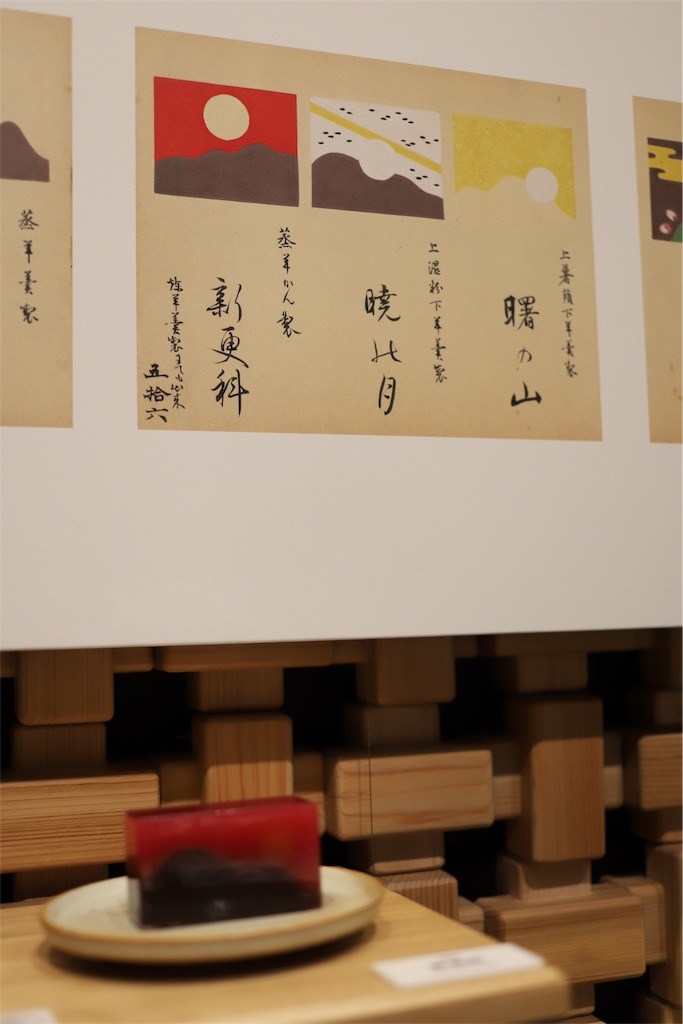 上暑蕷下羊羹製
曙の山
上湿粉下羊羹製
暁の月
蒸羊かん製
新更科
煉羊羹製
五拾六
蒸羊羹製